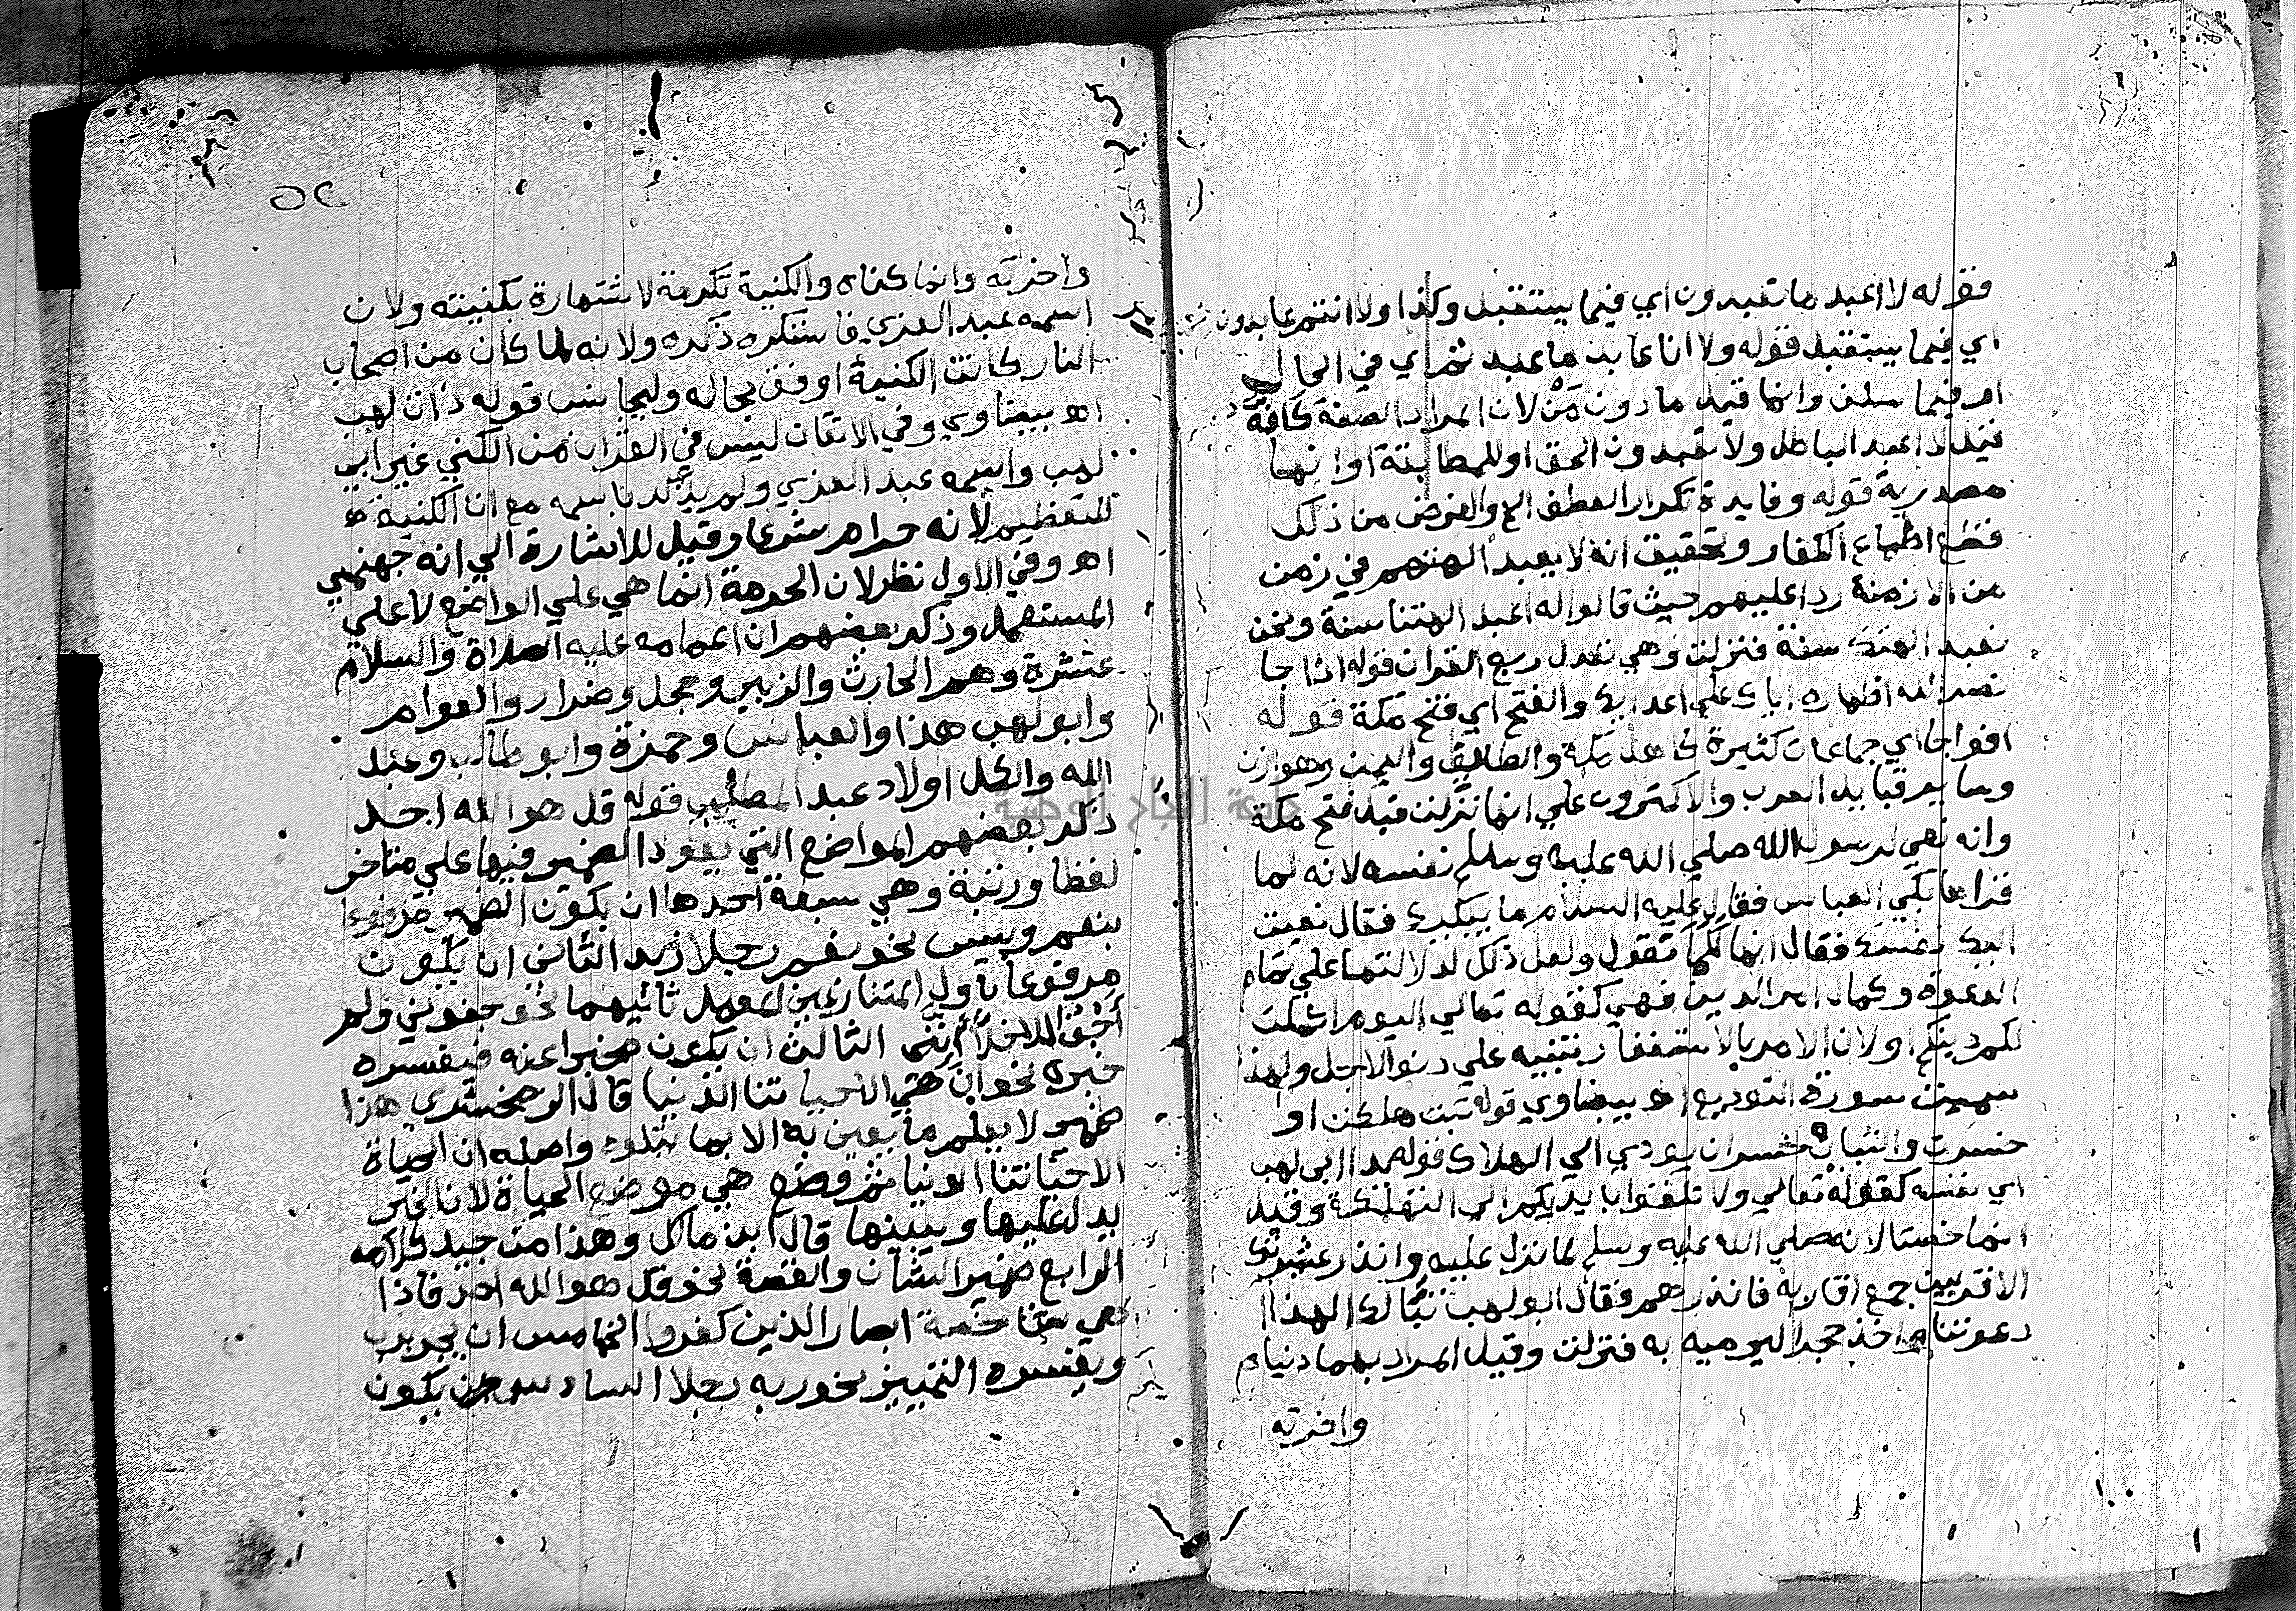 فقوله لا اعبد ما تعبدون اي فيما يستقبل وكذا ولا انتم عابدون
اي فيما يستقبل قوله ولا انا عابد ما عبدتم اي في الحال
او فيما سلف وانما قيل ما دون من لان المراد الصفة كانه
قيل لا اعبد الباطل ولا تعبدون الحق او للمطابقة او انها
مصدرية قوله وفايدة تكرار العطف الخ والغرض من ذلك
قطع اطماع الكفار وتحقيق انه لا يعبد الهتهم في زمن
من الازمنة ردا عليهم حيث قالوا له اعبد الهتنا سنة ونحن
نعبد الهك سنة فنزلت وهي تعدل ربع القران قوله اذا جا
نصر الله اظهاره اياك علي اعدايك والفتح اي فتح مكة قوله
افواجا اي جماعات كثيرة كاهل مكة والطايف واليمن وهوازن
وساير قبايل العرب والاكثرون علي انها نزلت قبل فتح مكة
وانه نعي لرسول الله صلي الله عليه وسلم نفسه لانه لما
قراها بكي العباس فقال عليه السلام ما يبكيك فقال نعيت
اليك نفسك فقال انها لكما تقول ولعل ذلك لدلالتها علي تمام
الدعوة وكمال امر الدين فهي كقوله تعالي اليوم اكملت
لكم دينكم او لان الامر بالاستغفار تنبيه علي دنو الاجل ولهذا
سميت سورة التوديع اه بيضاوي قوله تبت هلكت او
خسرت والتباب خسران يودي الي الهلاك قوله يدا ابي لهب
اي نفسه كقوله تعالي ولا تلقوا بايديكم الي التهلكة وقيل
انما خصتا لانه صلي الله عليه وسلم لما نزل عليه وانذر عشيرتك
الاقربين جمع اقاربه فانذرهم فقال ابو لهب تبا لك الهذا
دعوتنا واخذ حجرا ليرميه به فنزلت وقيل المراد بهما دنياه
واخرته
٥٢
واخرته وانما كناه والكنية تكرمة لاشتهاره بكنيته ولان
اسمه عبد العزي فاستكره ذكره ولانه لما كان من اصحاب
النار كانت الكنية اوفق بحاله وليجانس قوله ذات لهب
اه بيضاوي وفي الاتقان ليس في القران من الكني غير ابي
لهب واسمه عبد العزي ولم يذكر باسمه مع ان الكنية
للتعظيم لانه حرام شرعا وقيل للاشارة الي انه جهنمي
اه وفي الاول نظر لان الحرمة انما هي علي الواضع لا علي
المستعمل وذكر بعضهم ان اعمامه عليه الصلاة والسلام
عشرة وهم الحارث والزبير وحجل وضرار والعوام
وابو لهب هذا والعباس وحمزة وابو طالب وعبد
الله والكل اولاد عبد المطلب قوله قل هو الله احد
ذكر بعضهم المواضع التي يعود الضمير فيها علي متاخر
لفظا ورتبة وهي سبعة احدها ان يكون الضمير مرفوعا
بنعم وبيس نحو نعم رجلا زيد الثاني ان يكون
مرفوعا باول المتنازعين المعمل ثانيهما نحو جفوني ولم
اجف الاخلا انني الثالث ان يكون مخبرا عنه فيفسره
خبره نحو ان هي الا حياتنا الدنيا قال الزمخشري هذا
ضمير لا يعلم ما يعين به الا بما يتلوه واصله ان الحياة
الا حياتنا الدنيا ثم وضع هي موضع الحياة لان الخبر
يدل عليها ويبينها قال ابن مالك وهذا من جيد كلامه
الرابع ضمير الشان والقصة نحو قل هو الله احد فاذا
هي شاخصة ابصار الذين كفروا الخامس ان يجر برب
ويفسره التمييز نحو ربه رجلا السادس ان يكون